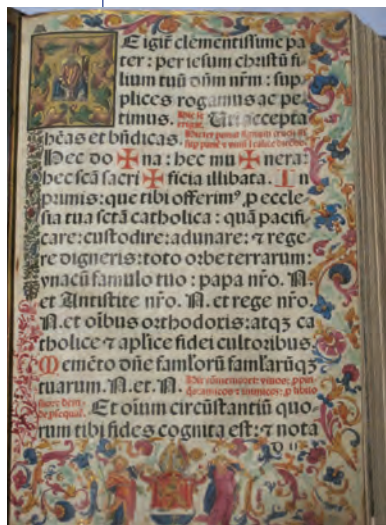 E igit̃ clementissime pa
ter : per iesum christũ fi
lium tuũ dñm nr̃m : sup
plices rogamus ac pe
timus. Uti accepta
hẽas et bñdicas.
Hec do ✠ na : hec mu ✠ nera :
hec sc̃a sacri ✠ ficia illibata. In
primis : que tibi offerim⁹ . ꝓ eccle
sia tua sctã catholica : quã pacifi
care : custodire : adunare : ⁊ rege
re digneris : toto orbe terrarum :
vnacũ famulo tuo : papa nr̃o. N.
et Antistite nr̃o. N. et rege nr̃o.
N. et oĩbus orthodoris : atqꝫ ca
tholice ⁊ apl̃ice fidei cultoribus.
Memẽto dñe famlorũ famlarũqꝫ
tuarum. N. et. N.
Et oĩum circũstantiũ quo
rum tibi fides cognita est : ⁊ nota